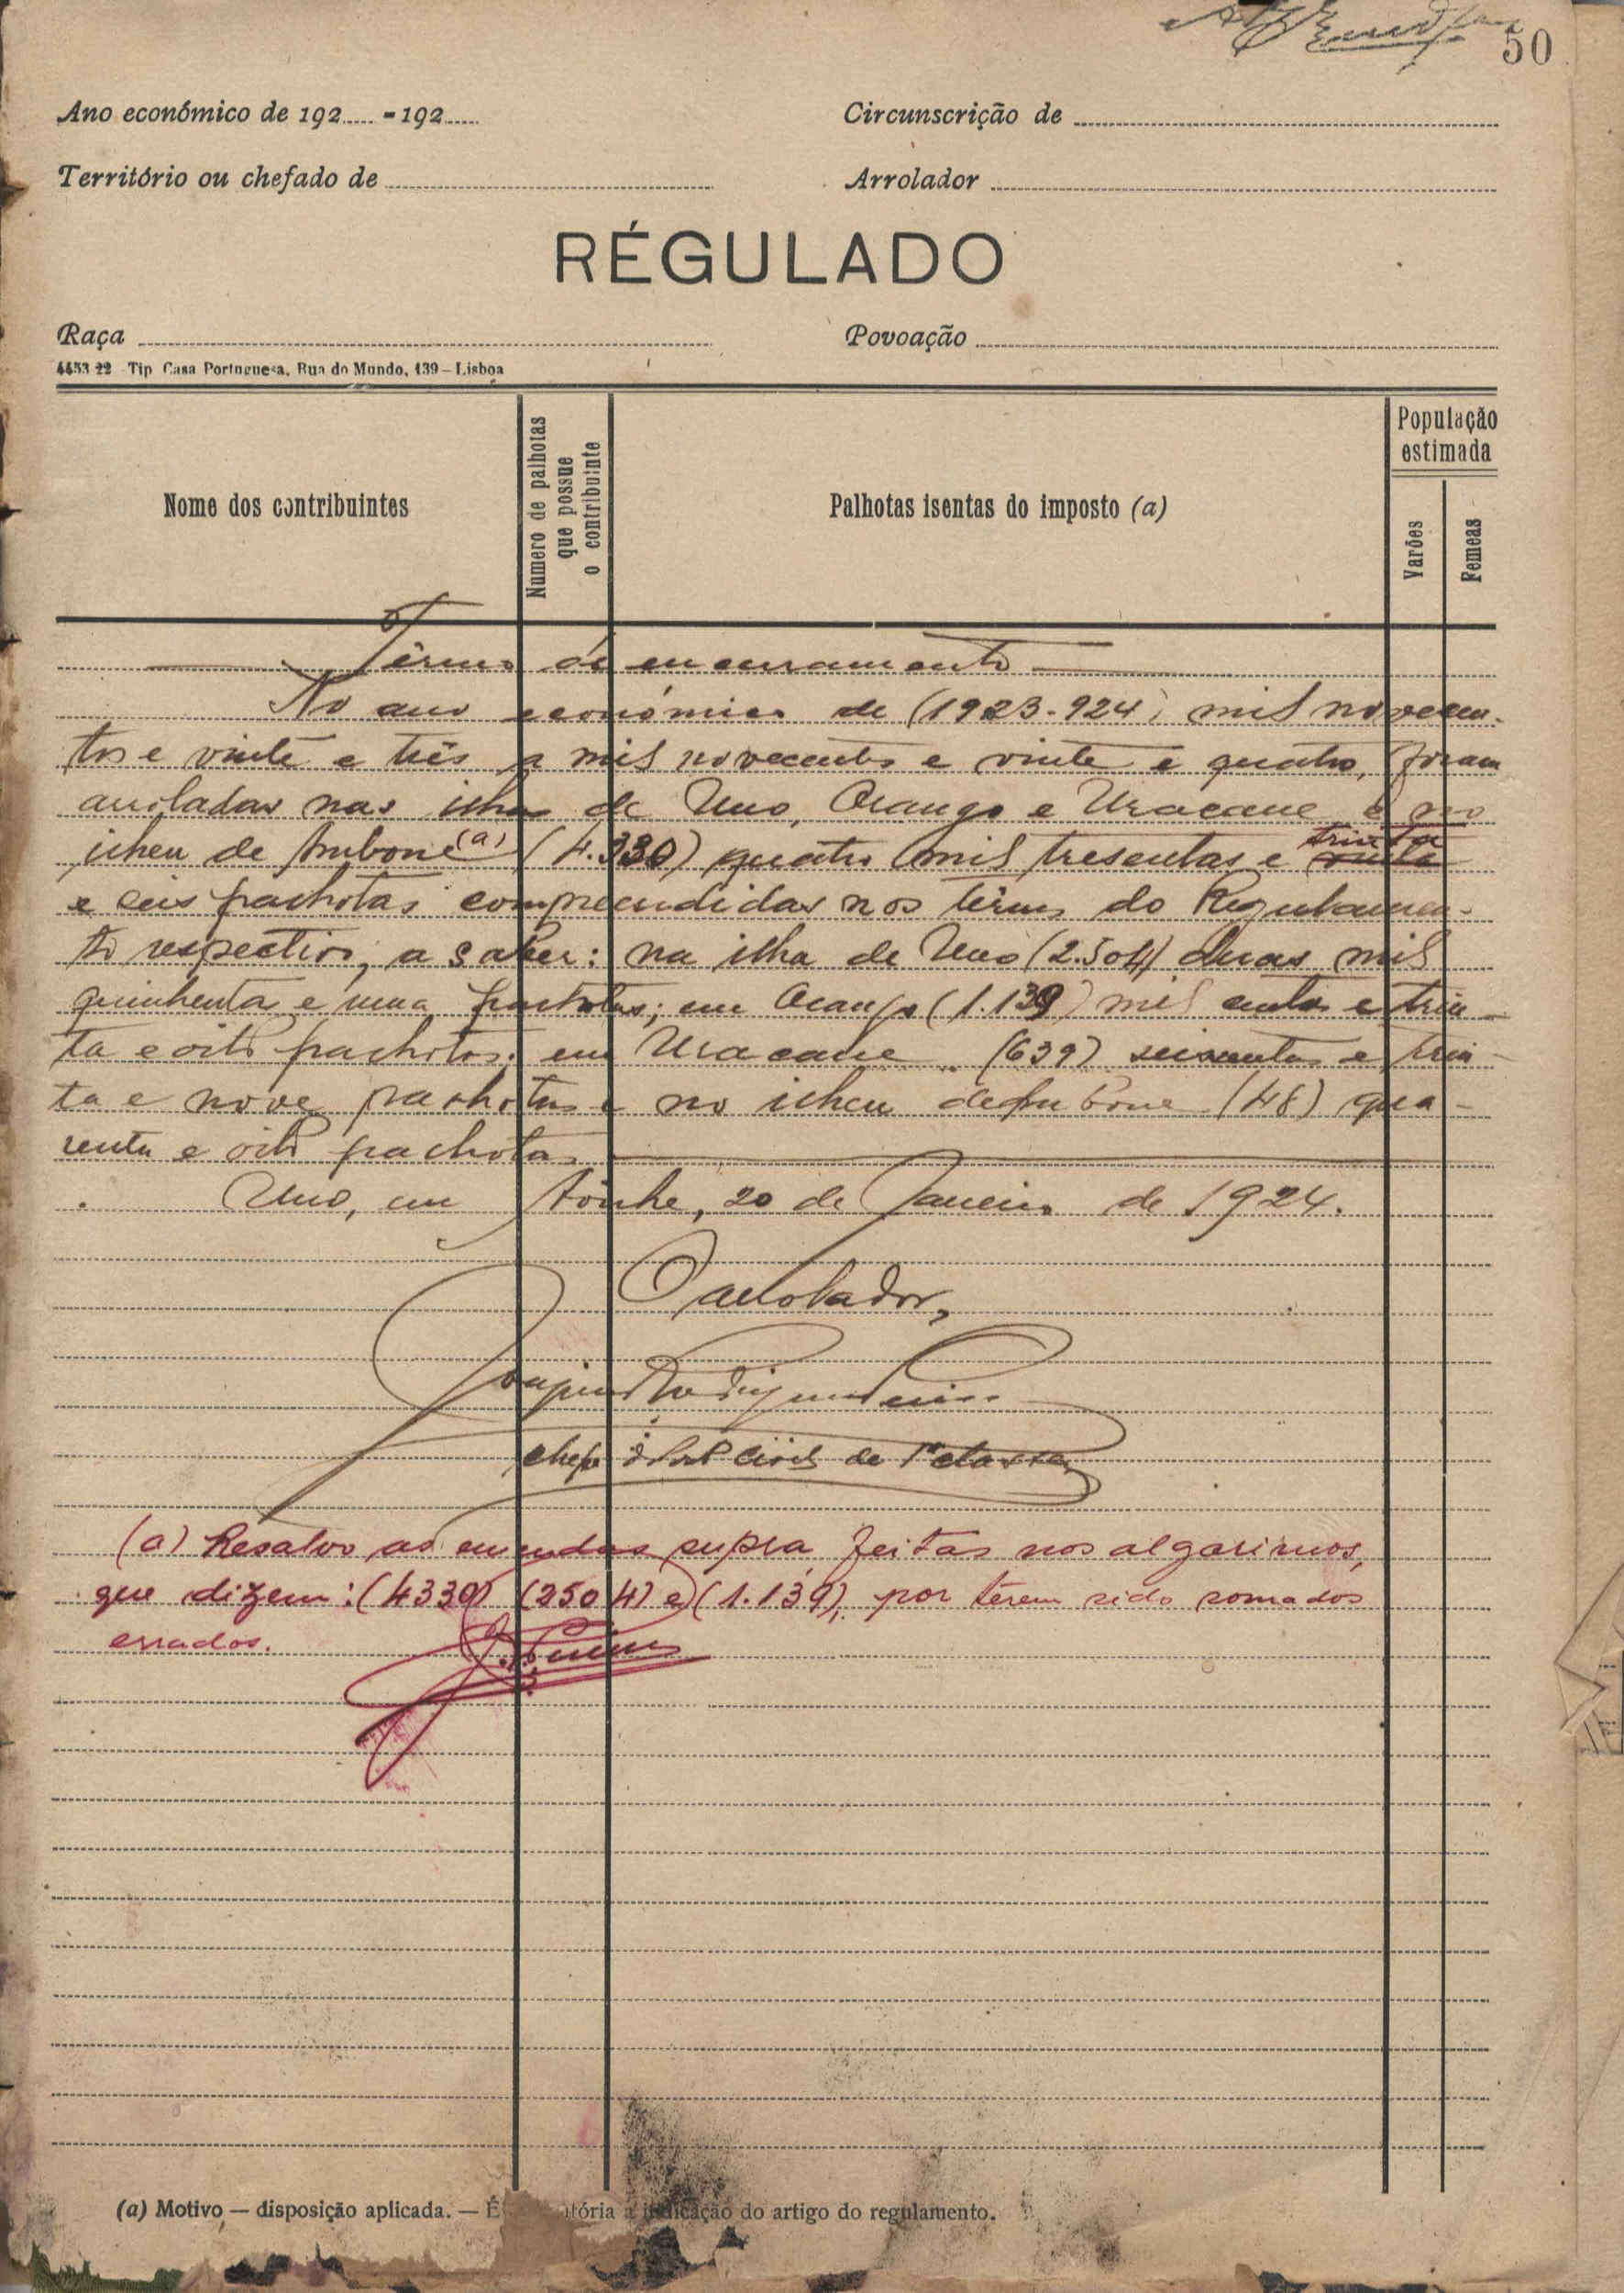 50
Ano económico de 192..... - 192......
Circunscrição de
Território ou chefado de
Arrolador
RÉGULADO
Raça
Povoação
4453 22 Tip Casa Portuguesa, Rua do Mundo, 139 – Lisboa
Nome dos contribuintes
Numero de palhotas que possue o contribuinte
Palhotas isentas do imposto (a)
População estimada
Varões
Femeas
Têrmo de encerramento
No ano económico de (1923-924) mil novecen-
tos e vinte e três a mil novecentos e vinte e quatro, foram
arroladas nas ilhas de Uno, Orango e Uracane e no
ilheu de (a) (4.330) quatro mil tresentas e trinta
e seis palhotas compreendidas nos têrmos do Regulamen-
to respectivo, a saber: na ilha de Uno (2.504) duas mil
quinhentas e uma palhotas; em Orango (1.139) mil cento e trin-
ta e oito palhotas; em Uracane (639) seiscentas e trin-
ta e nove palhotas e no ilheu de (48) qua-
renta e oito palhotas
Uno, em 20 de Janeiro de 1924.
O arrolador,
chefe civil de 1ª classe
(a) Resalvo as emendas supra, feitas nos algarismos,
que dizem: (4330) (2504) e (1.139), por têrem sido somados
errados.
(a) Motivo — disposição aplicada. — É atória a indicação do artigo do regulamento.